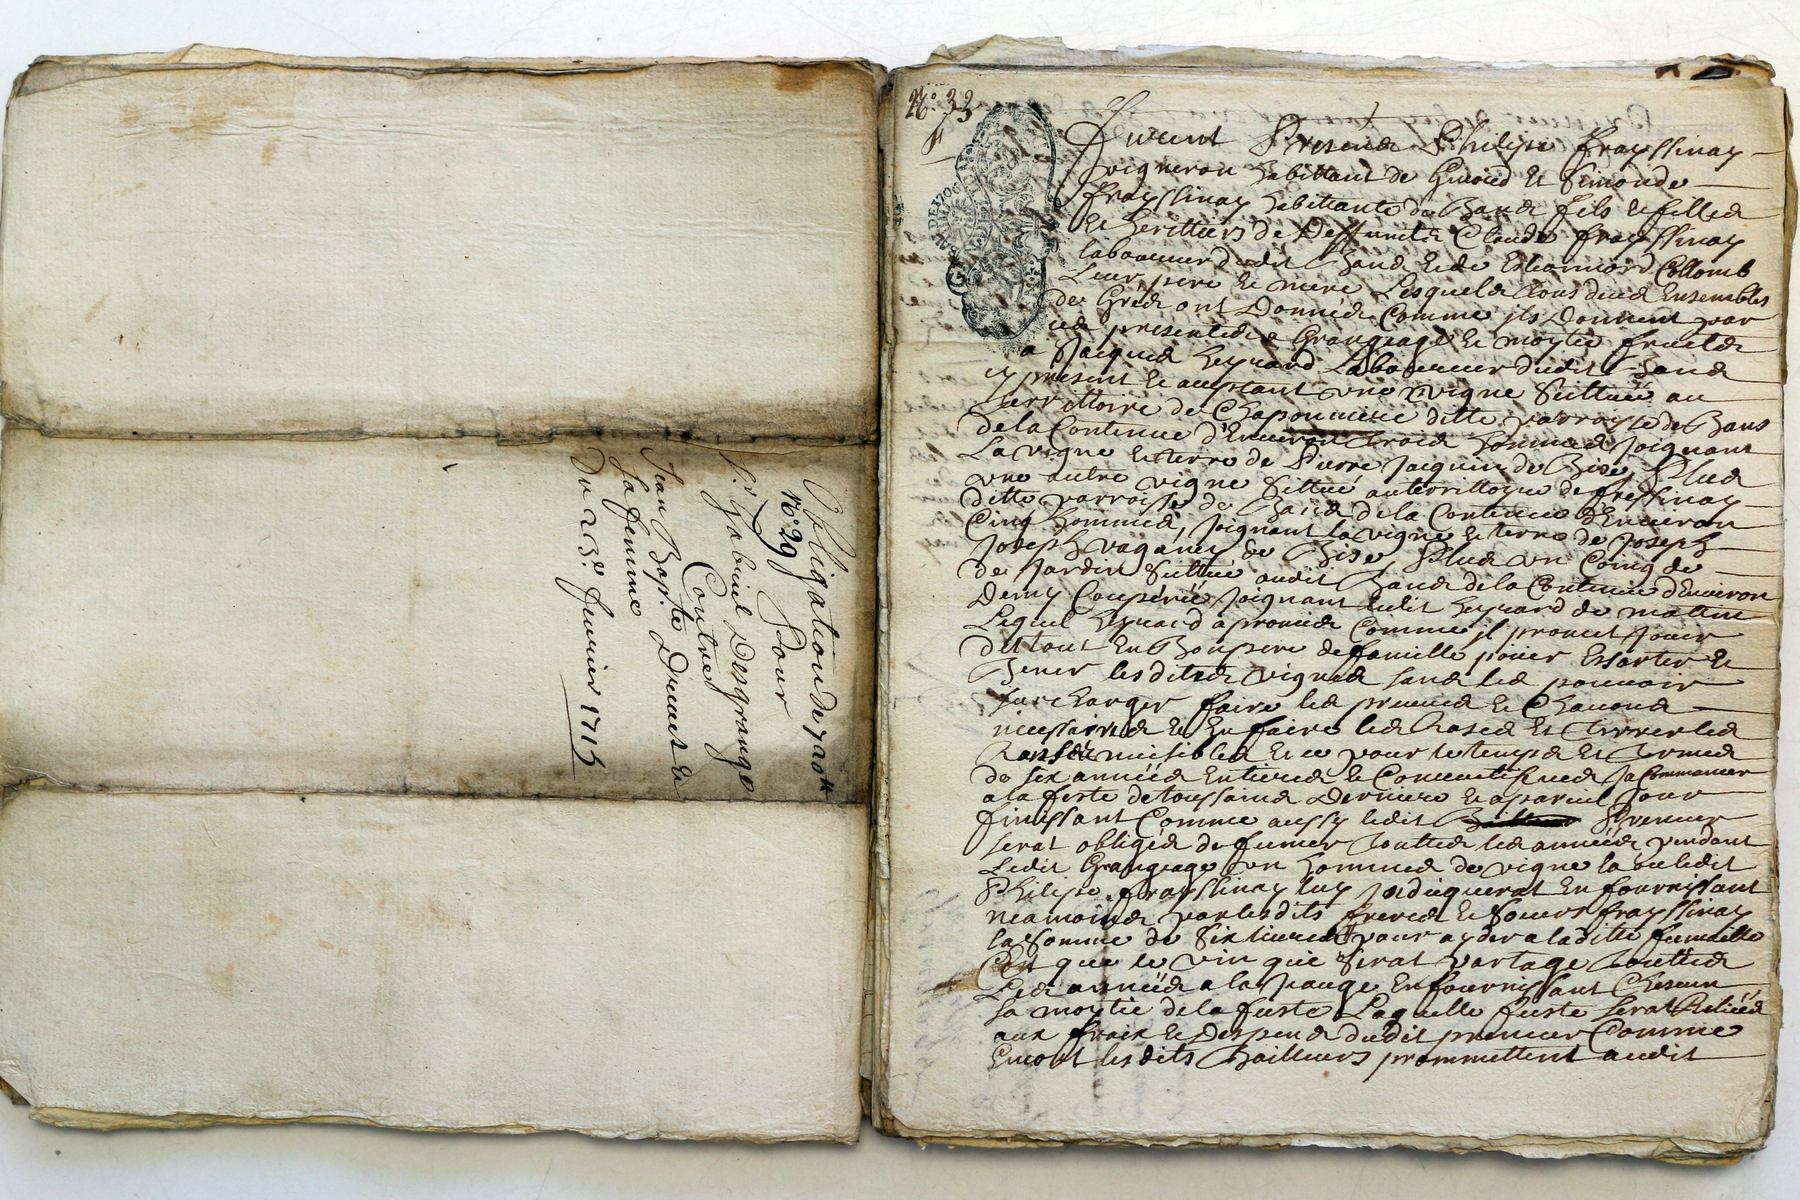 Obligation de 720 ₶
N.° 29 Pour
S.r Gabriel Desgrange
Contre
Jean Bap.te Drevet et
Sa femme
Du 23e fevrier 1715
N.° 33
Furent Presents Philipe frayssinay
vigneron habittant de Givord et Simonde
frayssinay habittante du Bans fils et filles
et herittiers de Deffuncts Claude frayssinay
laboureur dudit Bans et de Collomb
Leur pere et mere Lesquels tous deux Ensembles
de Grés ont Donnés Comme ils Donnent par
ces presentes a Grangeage et moytie fruicts
a Jacques heyuard Laboureur dudit Bans
cy present et acceptant une vigne Scittuée au
territtoire de ditte parroisse de Bans
de la Contenue d'Environ trois hommes Joignant
La vigne et terre de Pierre Jacquin de Bize, Plus
une autre vigne Sittué au territtoire de fressinay
ditte parroisse de Bans de la Contenue d'Environ
Cinq hommes, Joignant la vigne et terre de Joseph
Joseph de Bize, Plus un Coing de
de Jardin Scittué audit Bans de la Contenue d'Environ
Demy Couperée Joignant ledit heyuard de mattin
Lequel heyuard a promis Comme il promet Jouir
Du tout En Bon pere de famille pouer Essarter et
Biner lesdites vignes sans les pouvoir
surcharger faire les preuves et Chavons
necessaires et En faire les Rases et tirer les
nuisibles et ce pour le temps et termes
de six années Entieres et Consecutifves Ja Commancer
a la feste de toussaints Derniere et a pareil Jour
finissant Comme aussy ledit Preneur
serat obligés de fumer touttes les années pendant
Ledit Grangeage un hommes de vigne la ou ledit
Philipe frayssinay luy Jndiquerat En fournissant
neamoins par lesdits freres et Soeurs frayssinay
la Somme de Six livres pour ayder a laditte fumaille
Et que le vin que Serat partagé touttes
Les années a la Jauge En fournissant Chescun
sa moytie de la fuste Laquelle fuste serat Reliées
aux fraix et Despens dudit preneur Comme
Encor lesdits Bailleurs promettent audit